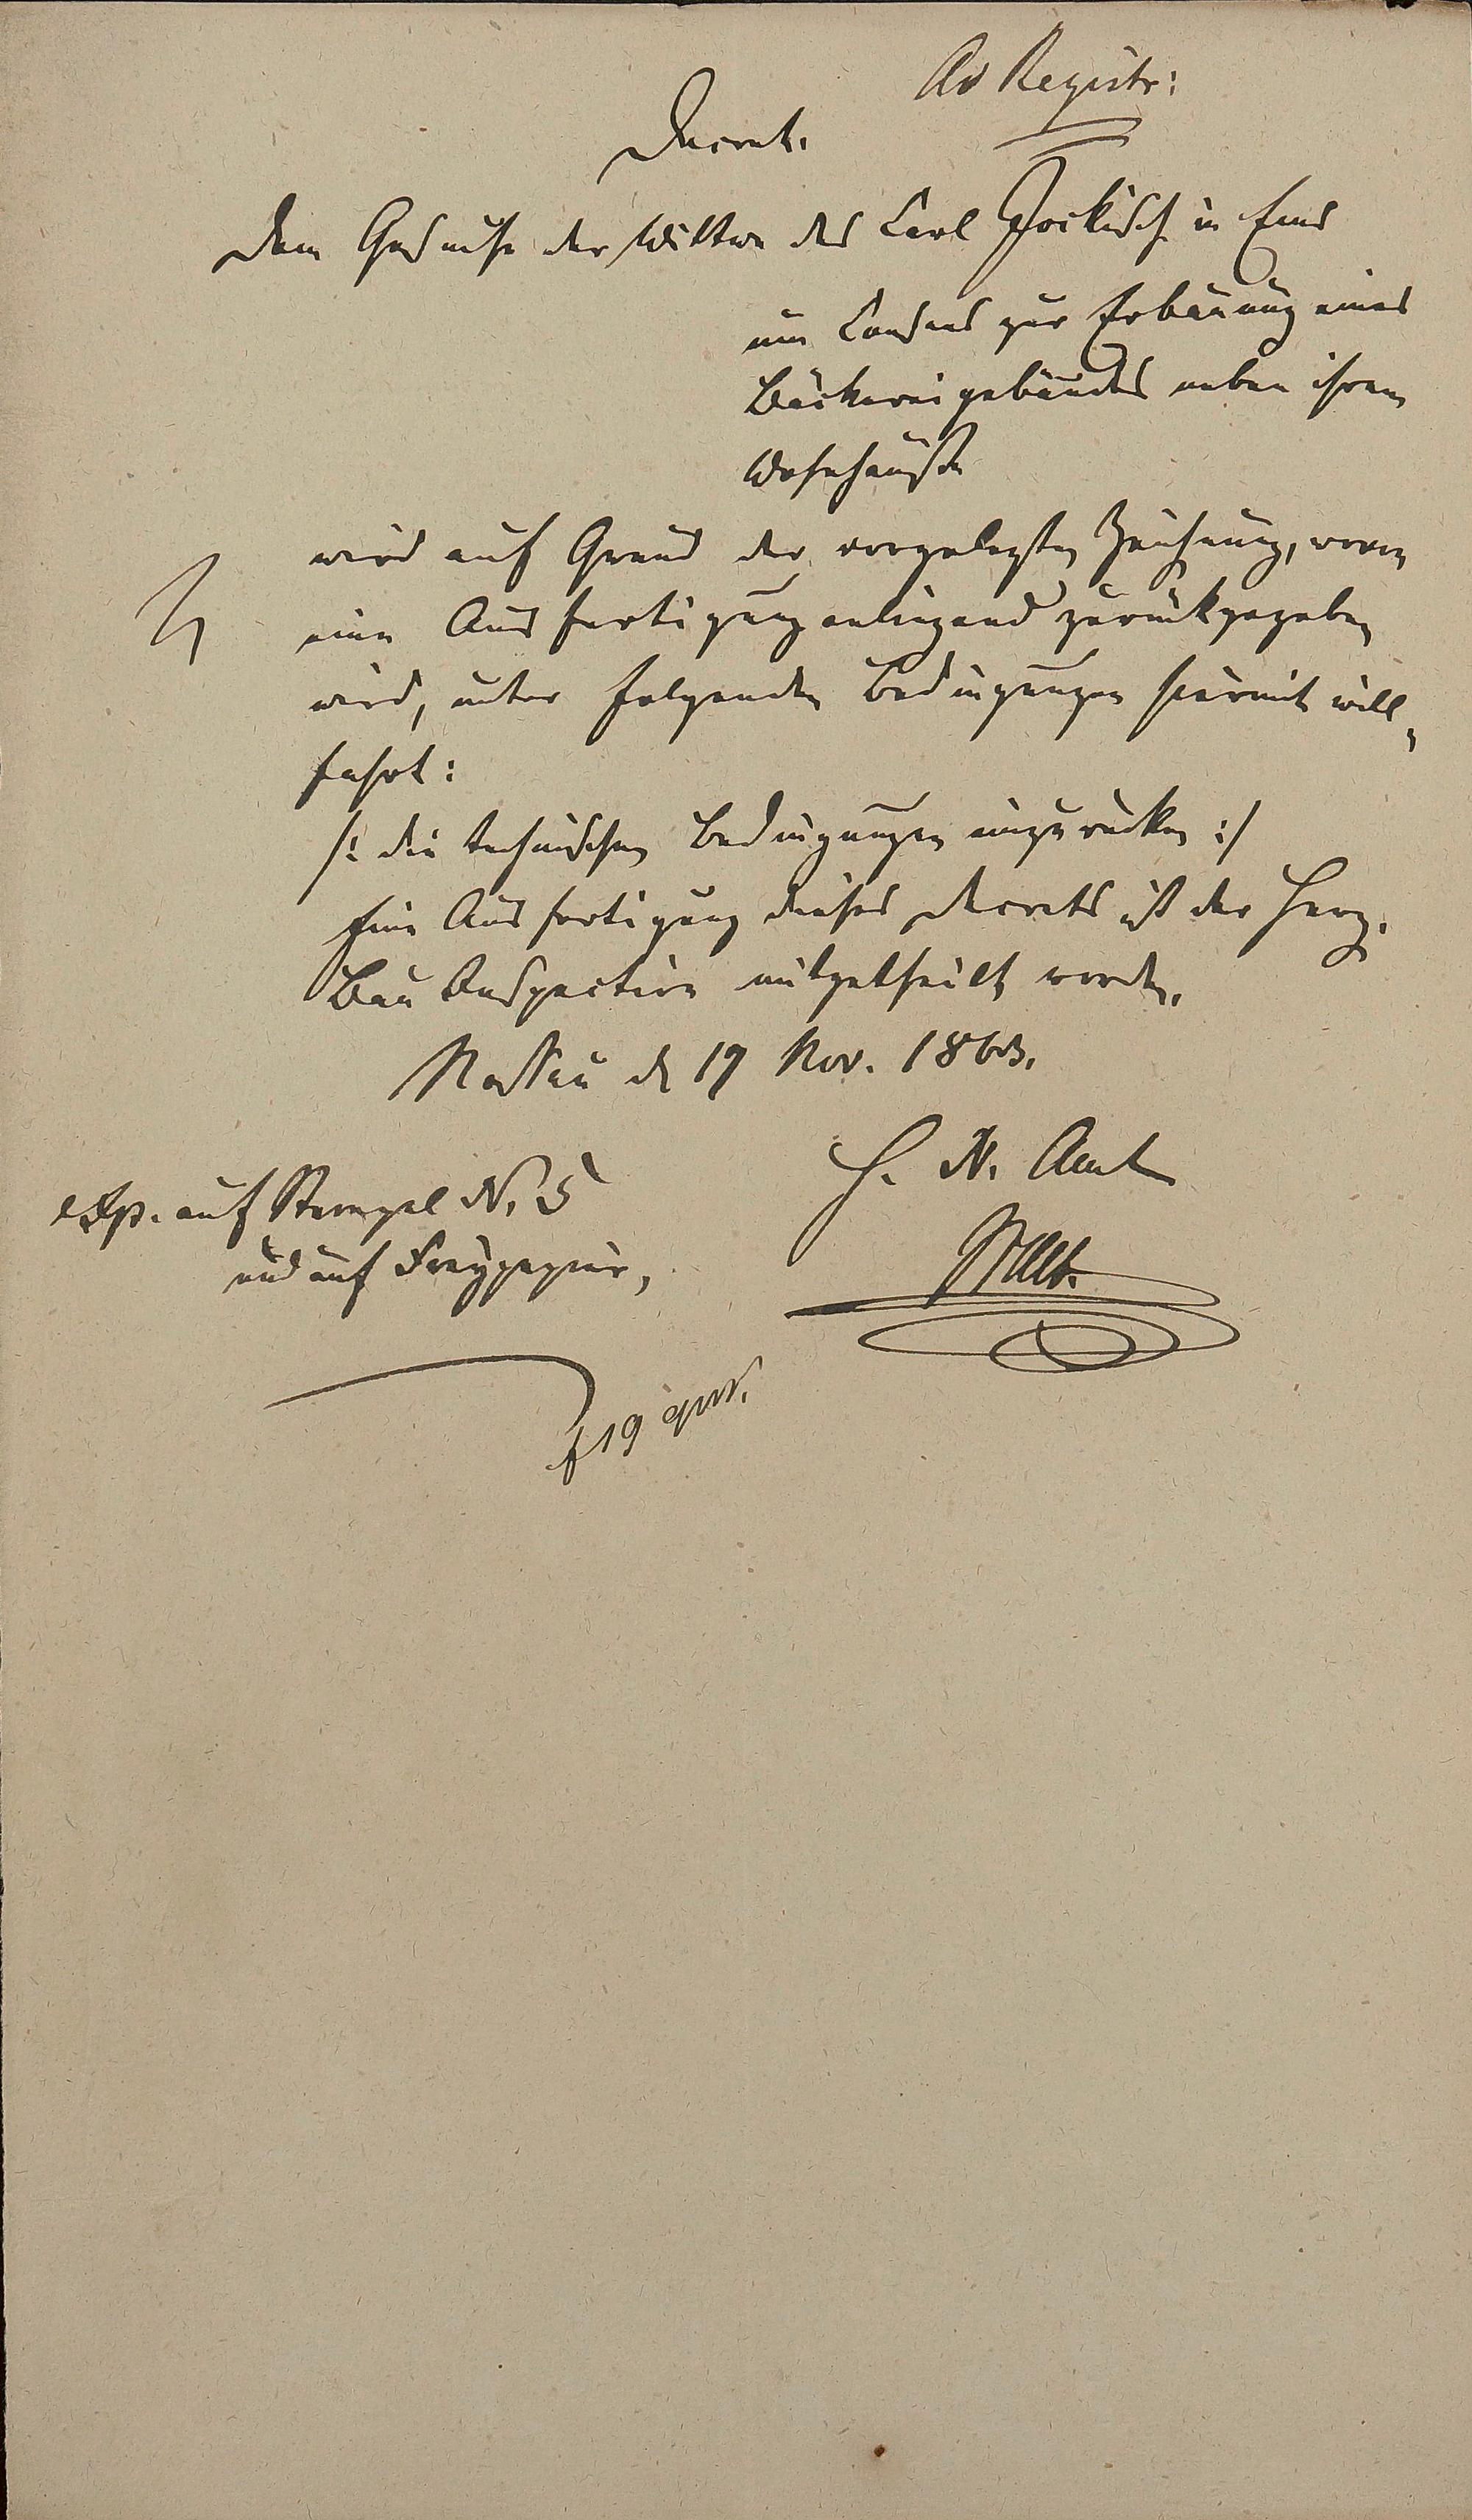 Ad Registr:
Decret.
Dem Gesuche der Wittwe des Carl Jockisch in Ems
um Consens zur Erbauung eines
Bäckereigebäudes neben ihrem
Wohnhauße
wird auf Grund der vorgelegten Zeichnung, wovon
eine Ausfertigung anliegend zurückgegeben
wird, unter folgenden Bedingungen hiermit will-
fahrt:
/: die technischen Bedingungen einzurücken :/
Eine Ausfertigung dieses Decrets ist der Herz.
Bau Inspection mitgetheilt worden.
Nassau d 17 Nov. 1863.
H. N. Amt
exp. auf Stempel N. 5
und auf Freypapier,
19